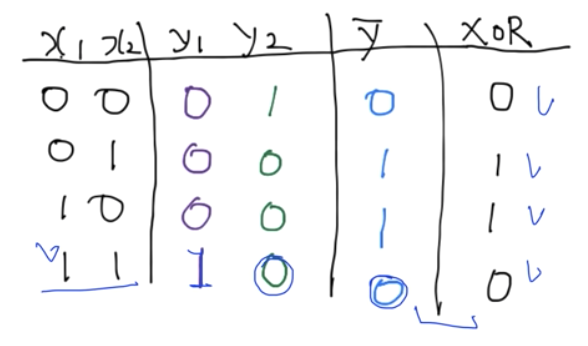 x1 x2 y1 y2 ȳ XOR
0 0 0 1 0 0
0 1 0 0 1 1
1 0 0 0 1 1
1 1 1 0 0 0